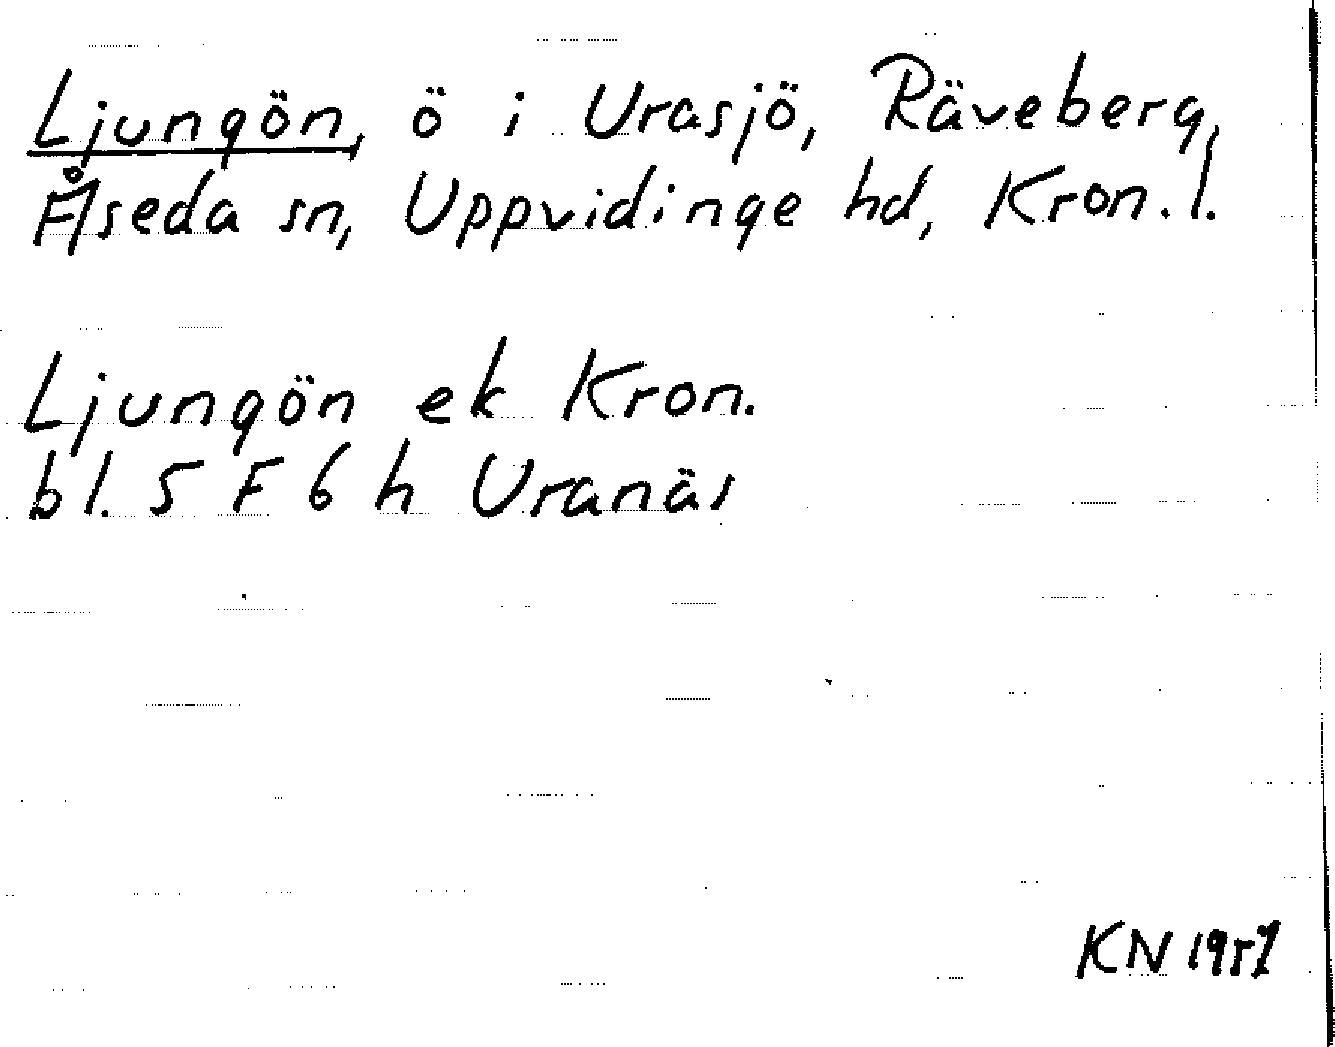 Ljungön, ö i Urasjö, Räveberg,
Åseda sn, Uppvidinge hd, Kron. l.
Ljungön ek Kron.
bl. 5 F 6 h Uranäs
KN